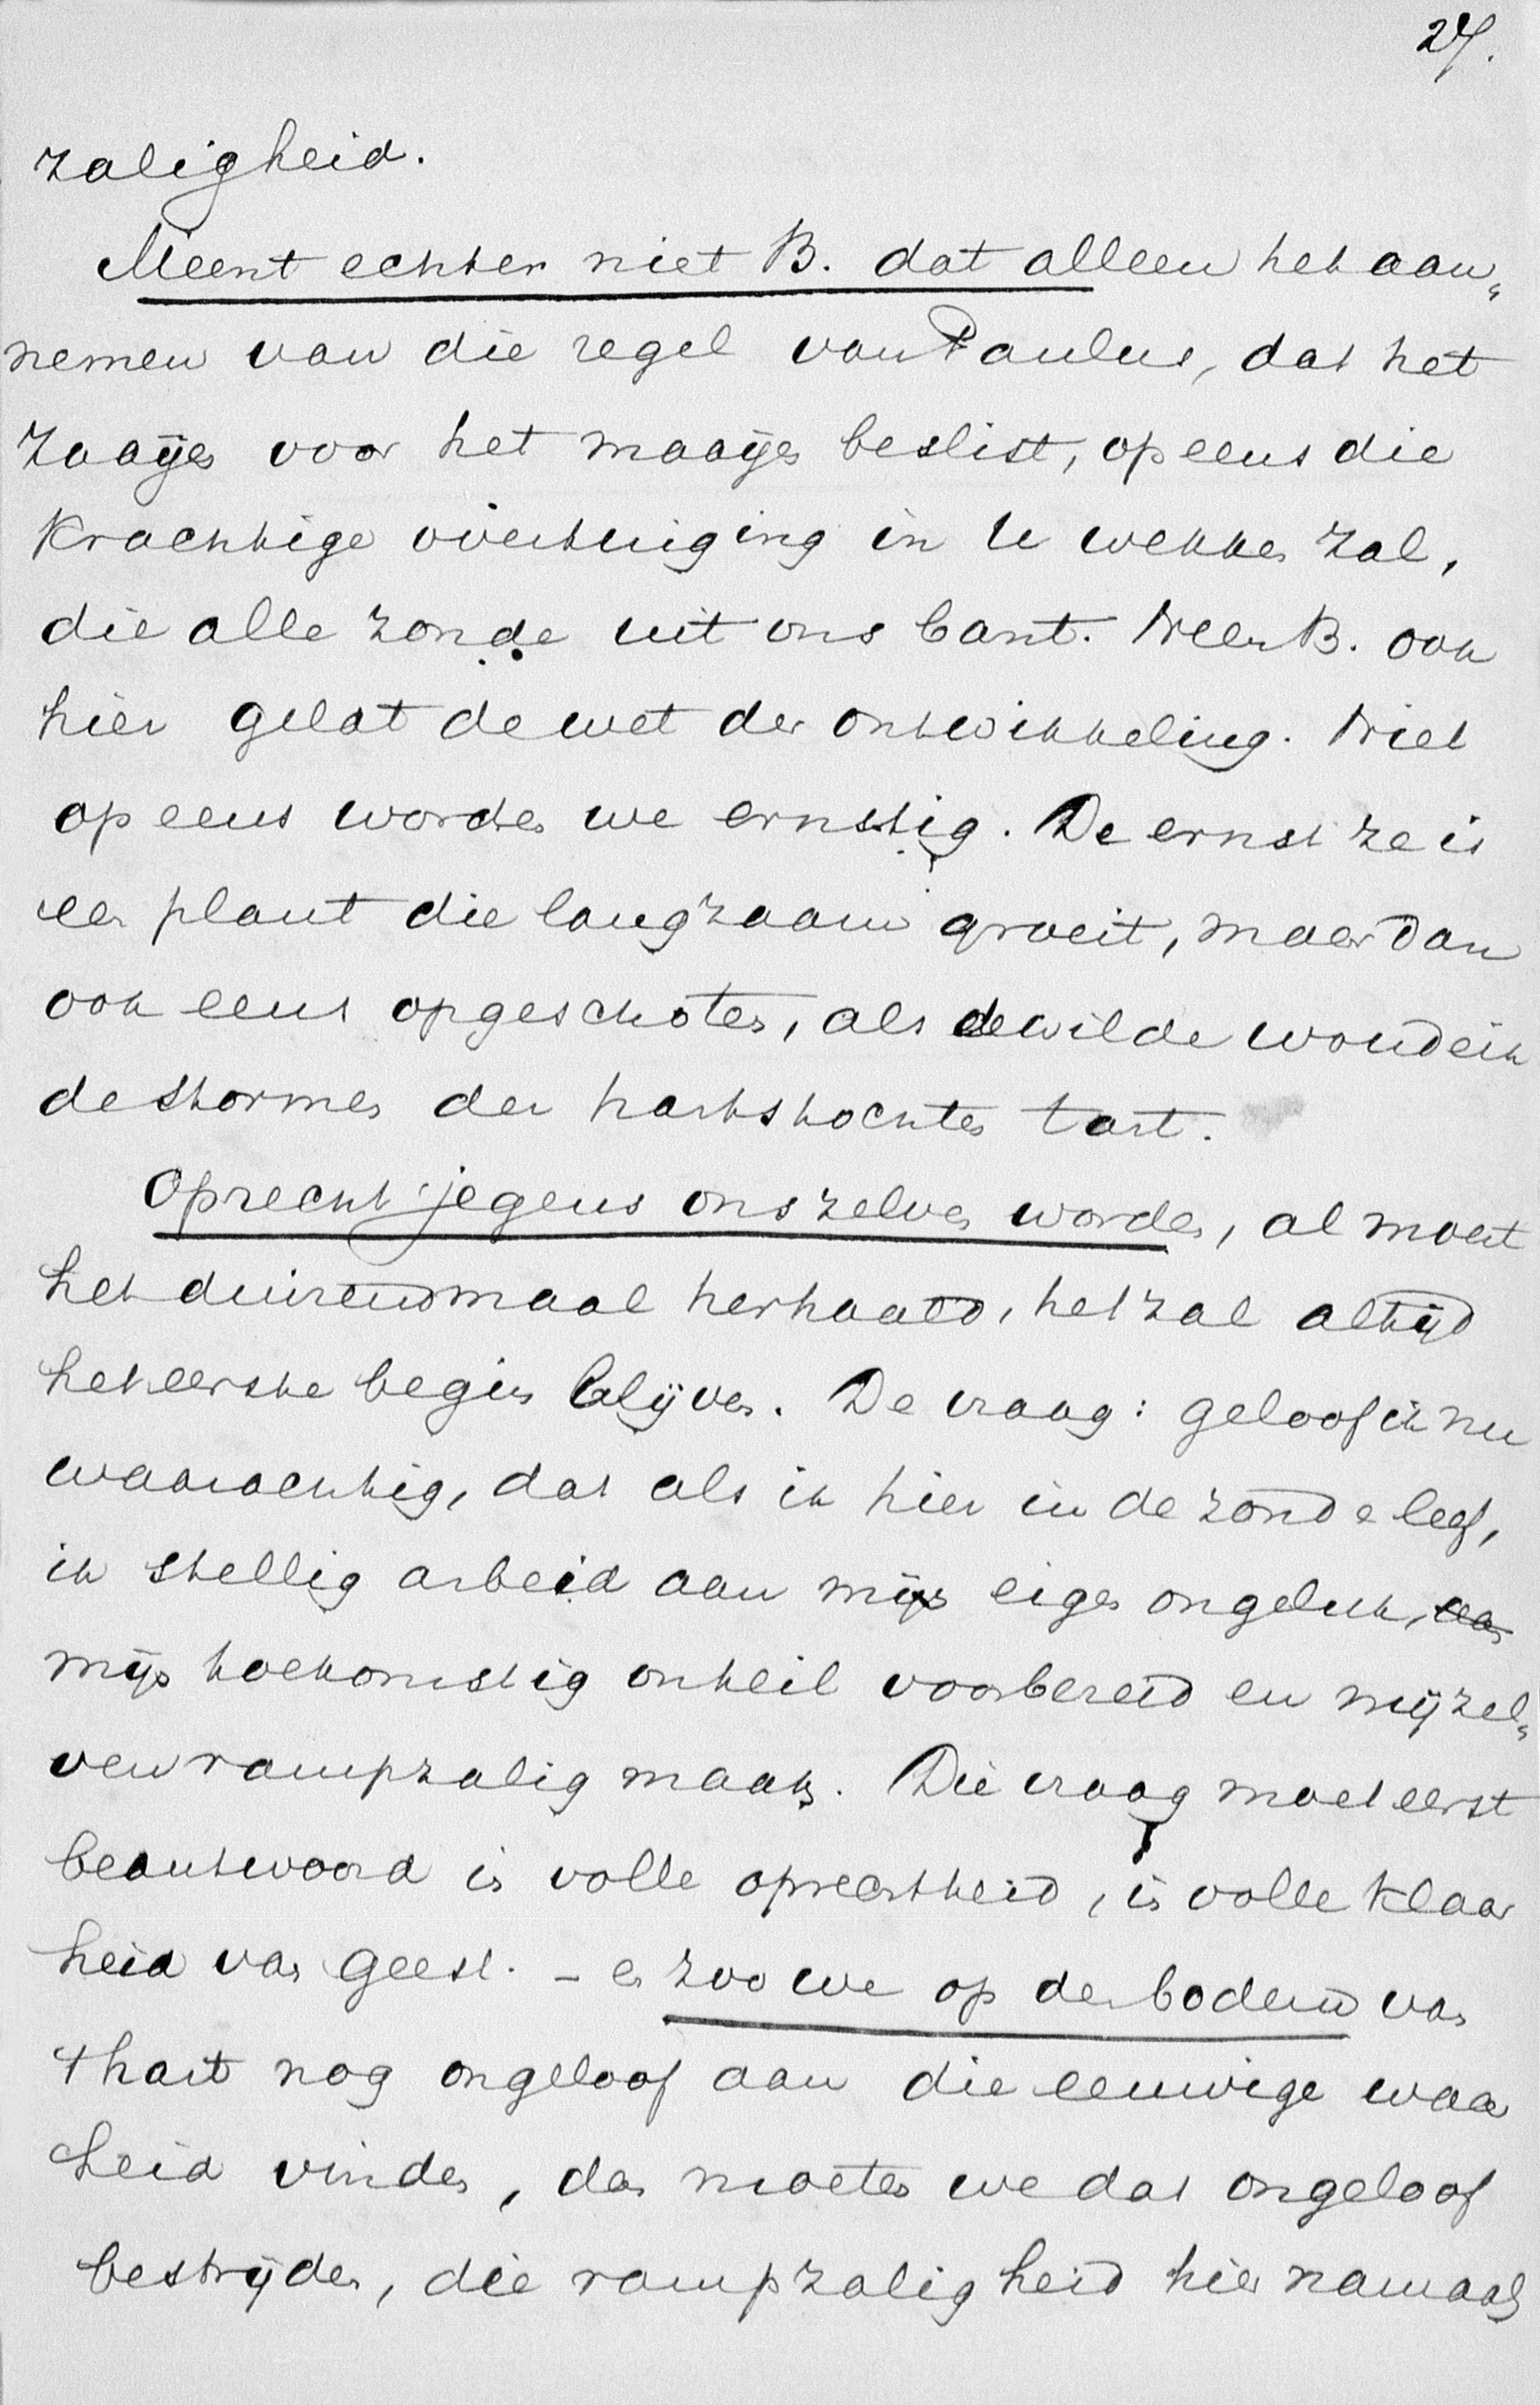 27.
zaligheid.
Meent echter niet B. dat alleen het aan„
nemen van die regel van Paulus, dat het
zaaijen voor het maaijen beslist, op eens die
krachtige overtuiging in U wekken zal,
die alle zonde uit ons bant. Neen B. ook
hier geldt de wet der ontwikkeling. Niet
op eens worden we ernstig. De ernst ze is
een plant die langzaam groeit, maar dan
ook eens opgeschoten, als de wilde woudeik
de stormen der hartstochten tart.
Oprecht jegens ons zelven worden, al moest
het duizendmaal herhaald, het zal altijd
het eerste begin blijven. De vraag: geloof ik nu
waarachtig, dat als ik hier in de zonde leef,
ik stellig arbeid aan mijn eigen ongeluk,
mijn toekomstig onheil voorbereid en mijzel„
ven rampzalig maak. Die vraag moet eerst
beantwoord in volle oprechtheid, in volle klaar
heid van geest. – en zoo we op den bodem van
t hart nog ongeloof aan die eeuwige waar
heid vinden, dan moeten we dat ongeloof
bestrijden, die rampzaligheid hier namaals